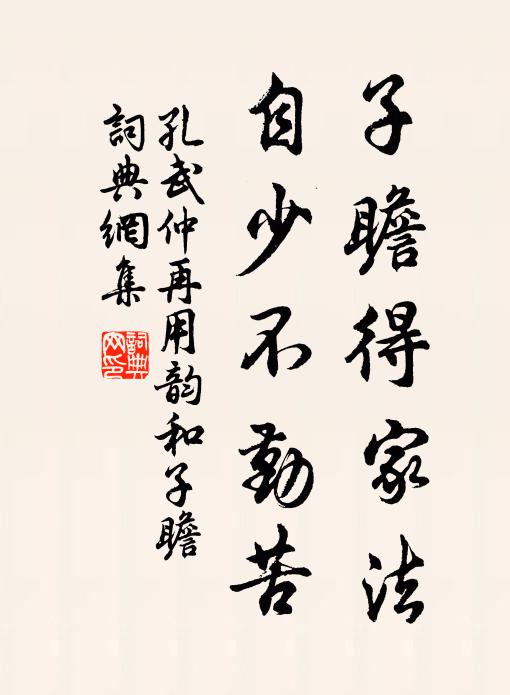 子瞻得家法
自少不勤苦
孔武仲再用韵和子瞻
詞典網集
詞典
网印